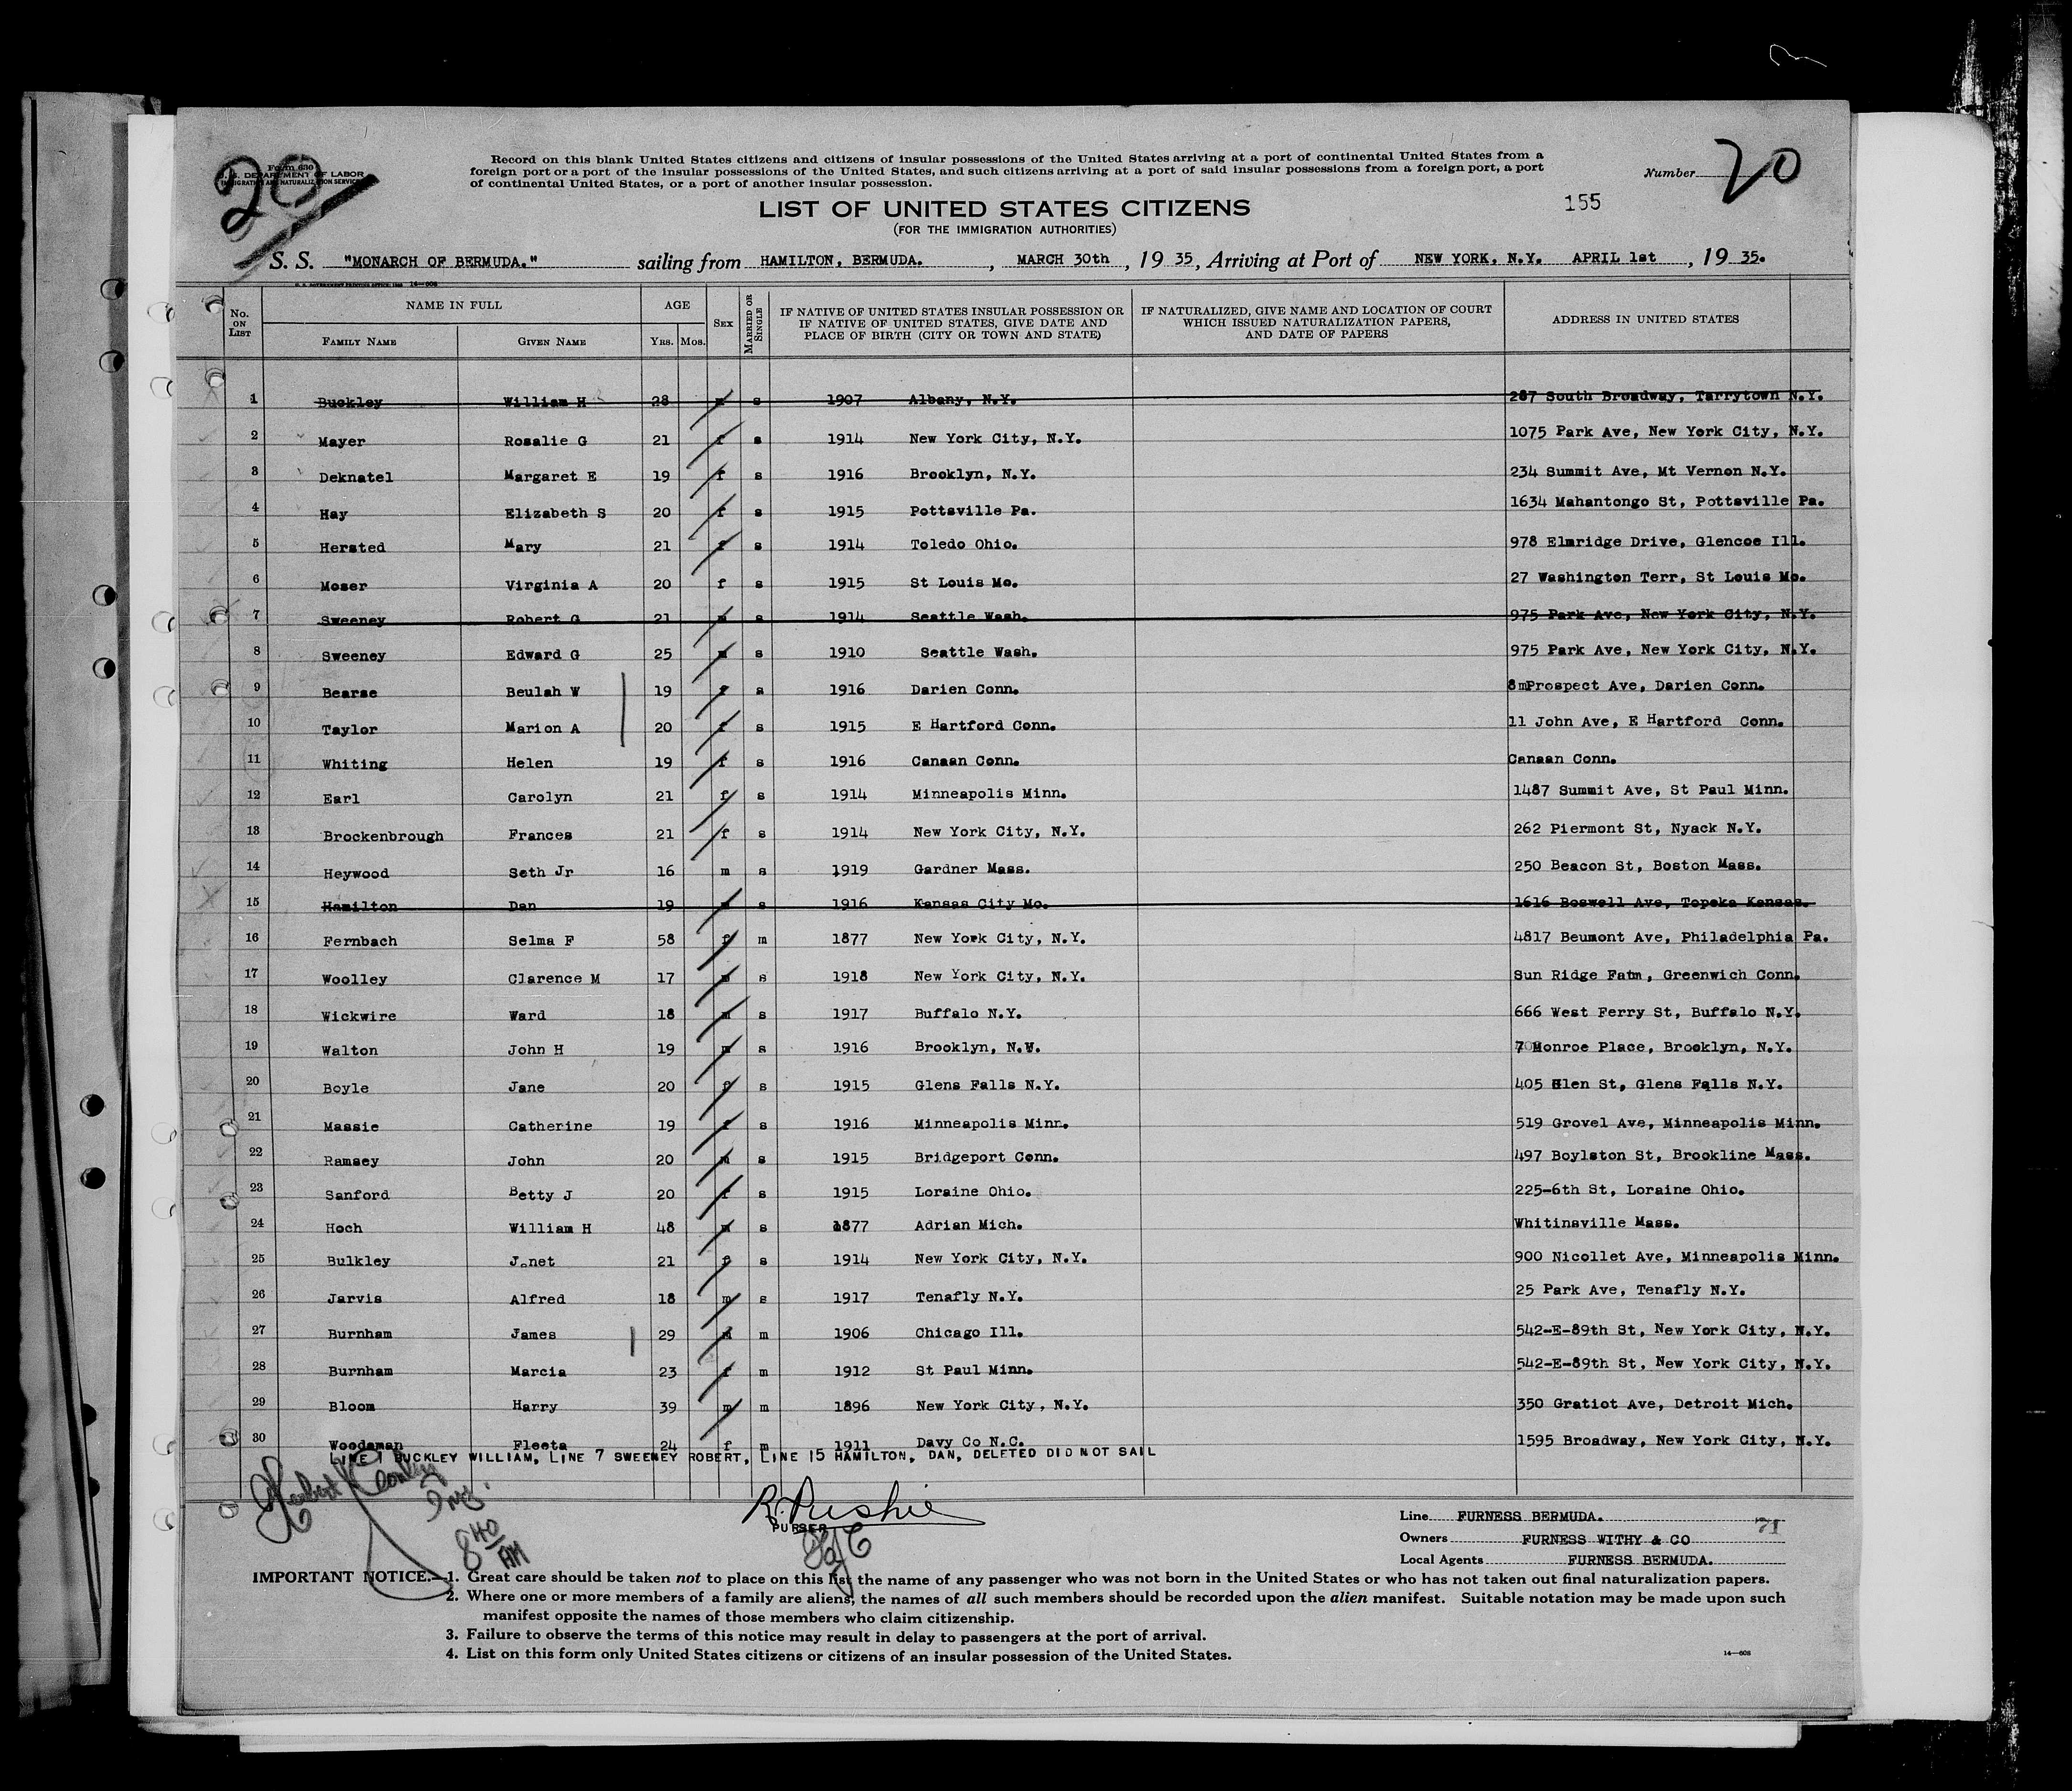 20
Form 630
U. S. DEPARTMENT OF LABOR
IMMIGRATION AND NATURALIZATION SERVICE
Record on this blank United States citizens and citizens of insular possessions of the United States arriving at a port of continental United States from a
foreign port or a port of the insular possessions of the United States, and such citizens arriving at a port of said insular possessions from a foreign port, a port
of continental United States, or a port of another insular possession.
Number 20
155
LIST OF UNITED STATES CITIZENS
(FOR THE IMMIGRATION AUTHORITIES)
S. S. "MONARCH OF BERMUDA." sailing from HAMILTON, BERMUDA. , MARCH 30th , 19 35, Arriving at Port of NEW YORK, N.Y. APRIL 1st , 19 35.
No. ON LIST NAME IN FULL AGE SEX MARRIED OR SINGLE IF NATIVE OF UNITED STATES INSULAR POSSESSION OR IF NATIVE OF UNITED STATES, GIVE DATE AND PLACE OF BIRTH (CITY OR TOWN AND STATE) IF NATURALIZED, GIVE NAME AND LOCATION OF COURT WHICH ISSUED NATURALIZATION PAPERS, AND DATE OF PAPERS ADDRESS IN UNITED STATES
FAMILY NAME GIVEN NAME YRS. MOS.
1 Buckley William H 28 m s 1907 Albany, N.Y. 287 South Broadway, Tarrytown N.Y.
2 Mayer Rosalie G 21 f s 1914 New York City, N.Y. 1075 Park Ave, New York City, N.Y.
3 Deknatel Margaret E 19 f s 1916 Brooklyn, N.Y. 234 Summit Ave, Mt Vernon N.Y.
4 Hay Elizabeth S 20 f s 1915 Pottsville Pa. 1634 Mahantongo St, Pottsville Pa.
5 Hersted Mary 21 f s 1914 Toledo Ohio. 978 Elmridge Drive, Glencoe Ill.
6 Moser Virginia A 20 f s 1915 St Louis Mo. 27 Washington Terr, St Louis Mo.
7 Sweeney Robert G 21 m s 1914 Seattle Wash. 975 Park Ave, New York City, N.Y.
8 Sweeney Edward G 25 m s 1910 Seattle Wash. 975 Park Ave, New York City, N.Y.
9 Bearse Beulah W 19 f s 1916 Darien Conn. 8mProspect Ave, Darien Conn.
10 Taylor Marion A 20 f s 1915 E Hartford Conn. 11 John Ave, E Hartford Conn.
11 Whiting Helen 19 f s 1916 Canaan Conn. Canaan Conn.
12 Earl Carolyn 21 f s 1914 Minneapolis Minn. 1487 Summit Ave, St Paul Minn.
13 Brockenbrough Frances 21 f s 1914 New York City, N.Y. 262 Piermont St, Nyack N.Y.
14 Heywood Seth Jr 16 m s 1919 Gardner Mass. 250 Beacon St, Boston Mass.
15 Hamilton Dan 19 m s 1916 Kansas City Mo. 1616 Boswell Ave, Topeka Kansas.
16 Fernbach Selma F 58 f m 1877 New York City, N.Y. 4817 Beumont Ave, Philadelphia Pa.
17 Woolley Clarence M 17 m s 1918 New York City, N.Y. Sun Ridge Fatm, Greenwich Conn.
18 Wickwire Ward 18 m s 1917 Buffalo N.Y. 666 West Ferry St, Buffalo N.Y.
19 Walton John H 19 m s 1916 Brooklyn, N.Y. 7 Monroe Place, Brooklyn, N.Y.
20 Boyle Jane 20 f s 1915 Glens Falls N.Y. 405 Glen St, Glens Falls N.Y.
21 Massie Catherine 19 f s 1916 Minneapolis Minn. 519 Grovel Ave, Minneapolis Minn.
22 Ramsey John 20 m s 1915 Bridgeport Conn. 497 Boylston St, Brookline Mass.
23 Sanford Betty J 20 f s 1915 Loraine Ohio. 225-6th St, Loraine Ohio.
24 Hoch William H 48 m s 1877 Adrian Mich. Whitinsville Mass.
25 Bulkley Janet 21 f s 1914 New York City, N.Y. 900 Nicollet Ave, Minneapolis Minn.
26 Jarvis Alfred 18 m s 1917 Tenafly N.Y. 25 Park Ave, Tenafly N.Y.
27 Burnham James 29 m m 1906 Chicago Ill. 542-E-89th St, New York City, N.Y.
28 Burnham Marcia 23 f m 1912 St Paul Minn. 542-E-89th St, New York City, N.Y.
29 Bloom Harry 39 m m 1896 New York City, N.Y. 350 Gratiot Ave, Detroit Mich.
30 Woodsman Fleeta 24 f m 1911 Davy Co N.C. 1595 Broadway, New York City, N.Y.
LINE 1 BUCKLEY WILLIAM, LINE 7 SWEENEY ROBERT, LINE 15 HAMILTON, DAN, DELETED DID NOT SAIL
8 40 AM
PURSER
Line FURNESS BERMUDA.
71
Owners FURNESS WITHY & CO
Local Agents FURNESS BERMUDA.
IMPORTANT NOTICE.—1. Great care should be taken not to place on this list the name of any passenger who was not born in the United States or who has not taken out final naturalization papers.
2. Where one or more members of a family are aliens, the names of all such members should be recorded upon the alien manifest. Suitable notation may be made upon such
manifest opposite the names of those members who claim citizenship.
3. Failure to observe the terms of this notice may result in delay to passengers at the port of arrival.
4. List on this form only United States citizens or citizens of an insular possession of the United States.
14—608